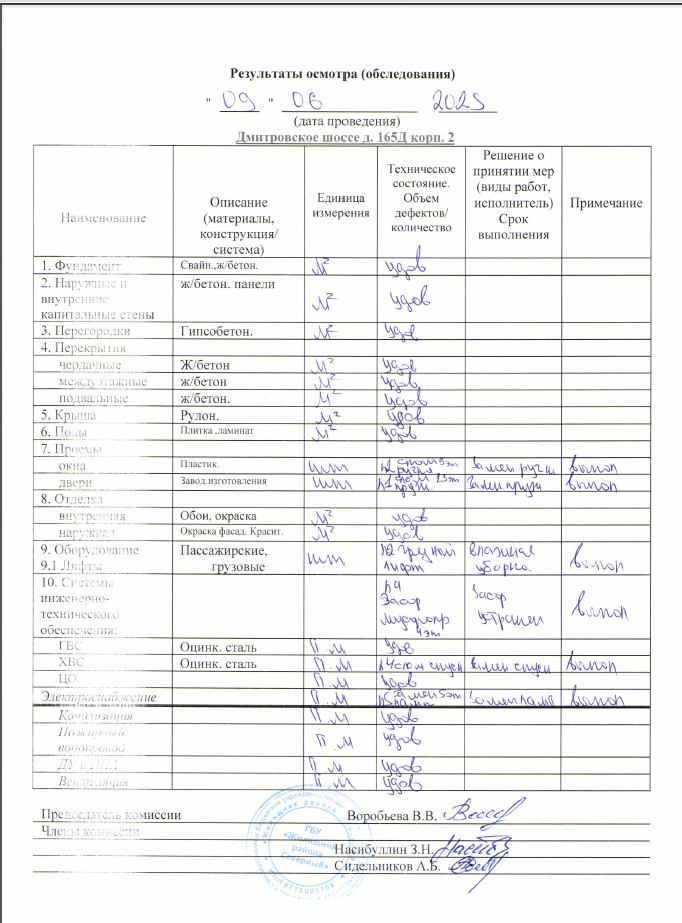 Результаты осмотра (обследования)
" 09 " 06 2025
(дата проведения)
Дмитровское шоссе д. 165Д корп. 2
Наименование Описание (материалы, конструкция/ система) Единица измерения Техническое состояние. Объем дефектов/ количество Решение о принятии мер (виды работ, исполнитель) Срок выполнения Примечание
1. Фундамент Свайн.,ж/бетон. м² удов
2. Наружные и внутренние капитальные стены ж/бетон. панели м² удов
3. Перегородки Гипсобетон. м² удов
4. Перекрытия
чердачные Ж/бетон м² удов
междуэтажные ж/бетон м² удов
подвальные ж/бетон. м² удов
5. Крыша Рулон. м² удов
6. Полы Плитка ,ламинат м² удов
7. Проемы
окна Пластик. шт ручка замен ручки выпол
двери Завод.изготовления шт выпол
8. Отделка
внутренняя Обои, окраска м² удов
наружная Окраска фасад. Красит. м² удов
9. Оборудование
9.1 Лифты Пассажирские, грузовые шт лифт влажная уборка выпол
10. Системы инженерно-технического обеспечения: засор засор устранен выпол
ГВС Оцинк. сталь п.м удов
ХВС Оцинк. сталь п.м выпол
ЦО п.м удов
Электроснабжение п.м замен ламп выпол
Канализация п.м удов
Пожарный водопровод п.м удов
ДУ и ППА п.м удов
Вентиляция п.м удов
Председатель комиссии Воробьева В.В.
Члены комиссии
Насибуллин З.Н.
Сидельников А.Б.
ГБУ
«Жилищник
района
Северный»